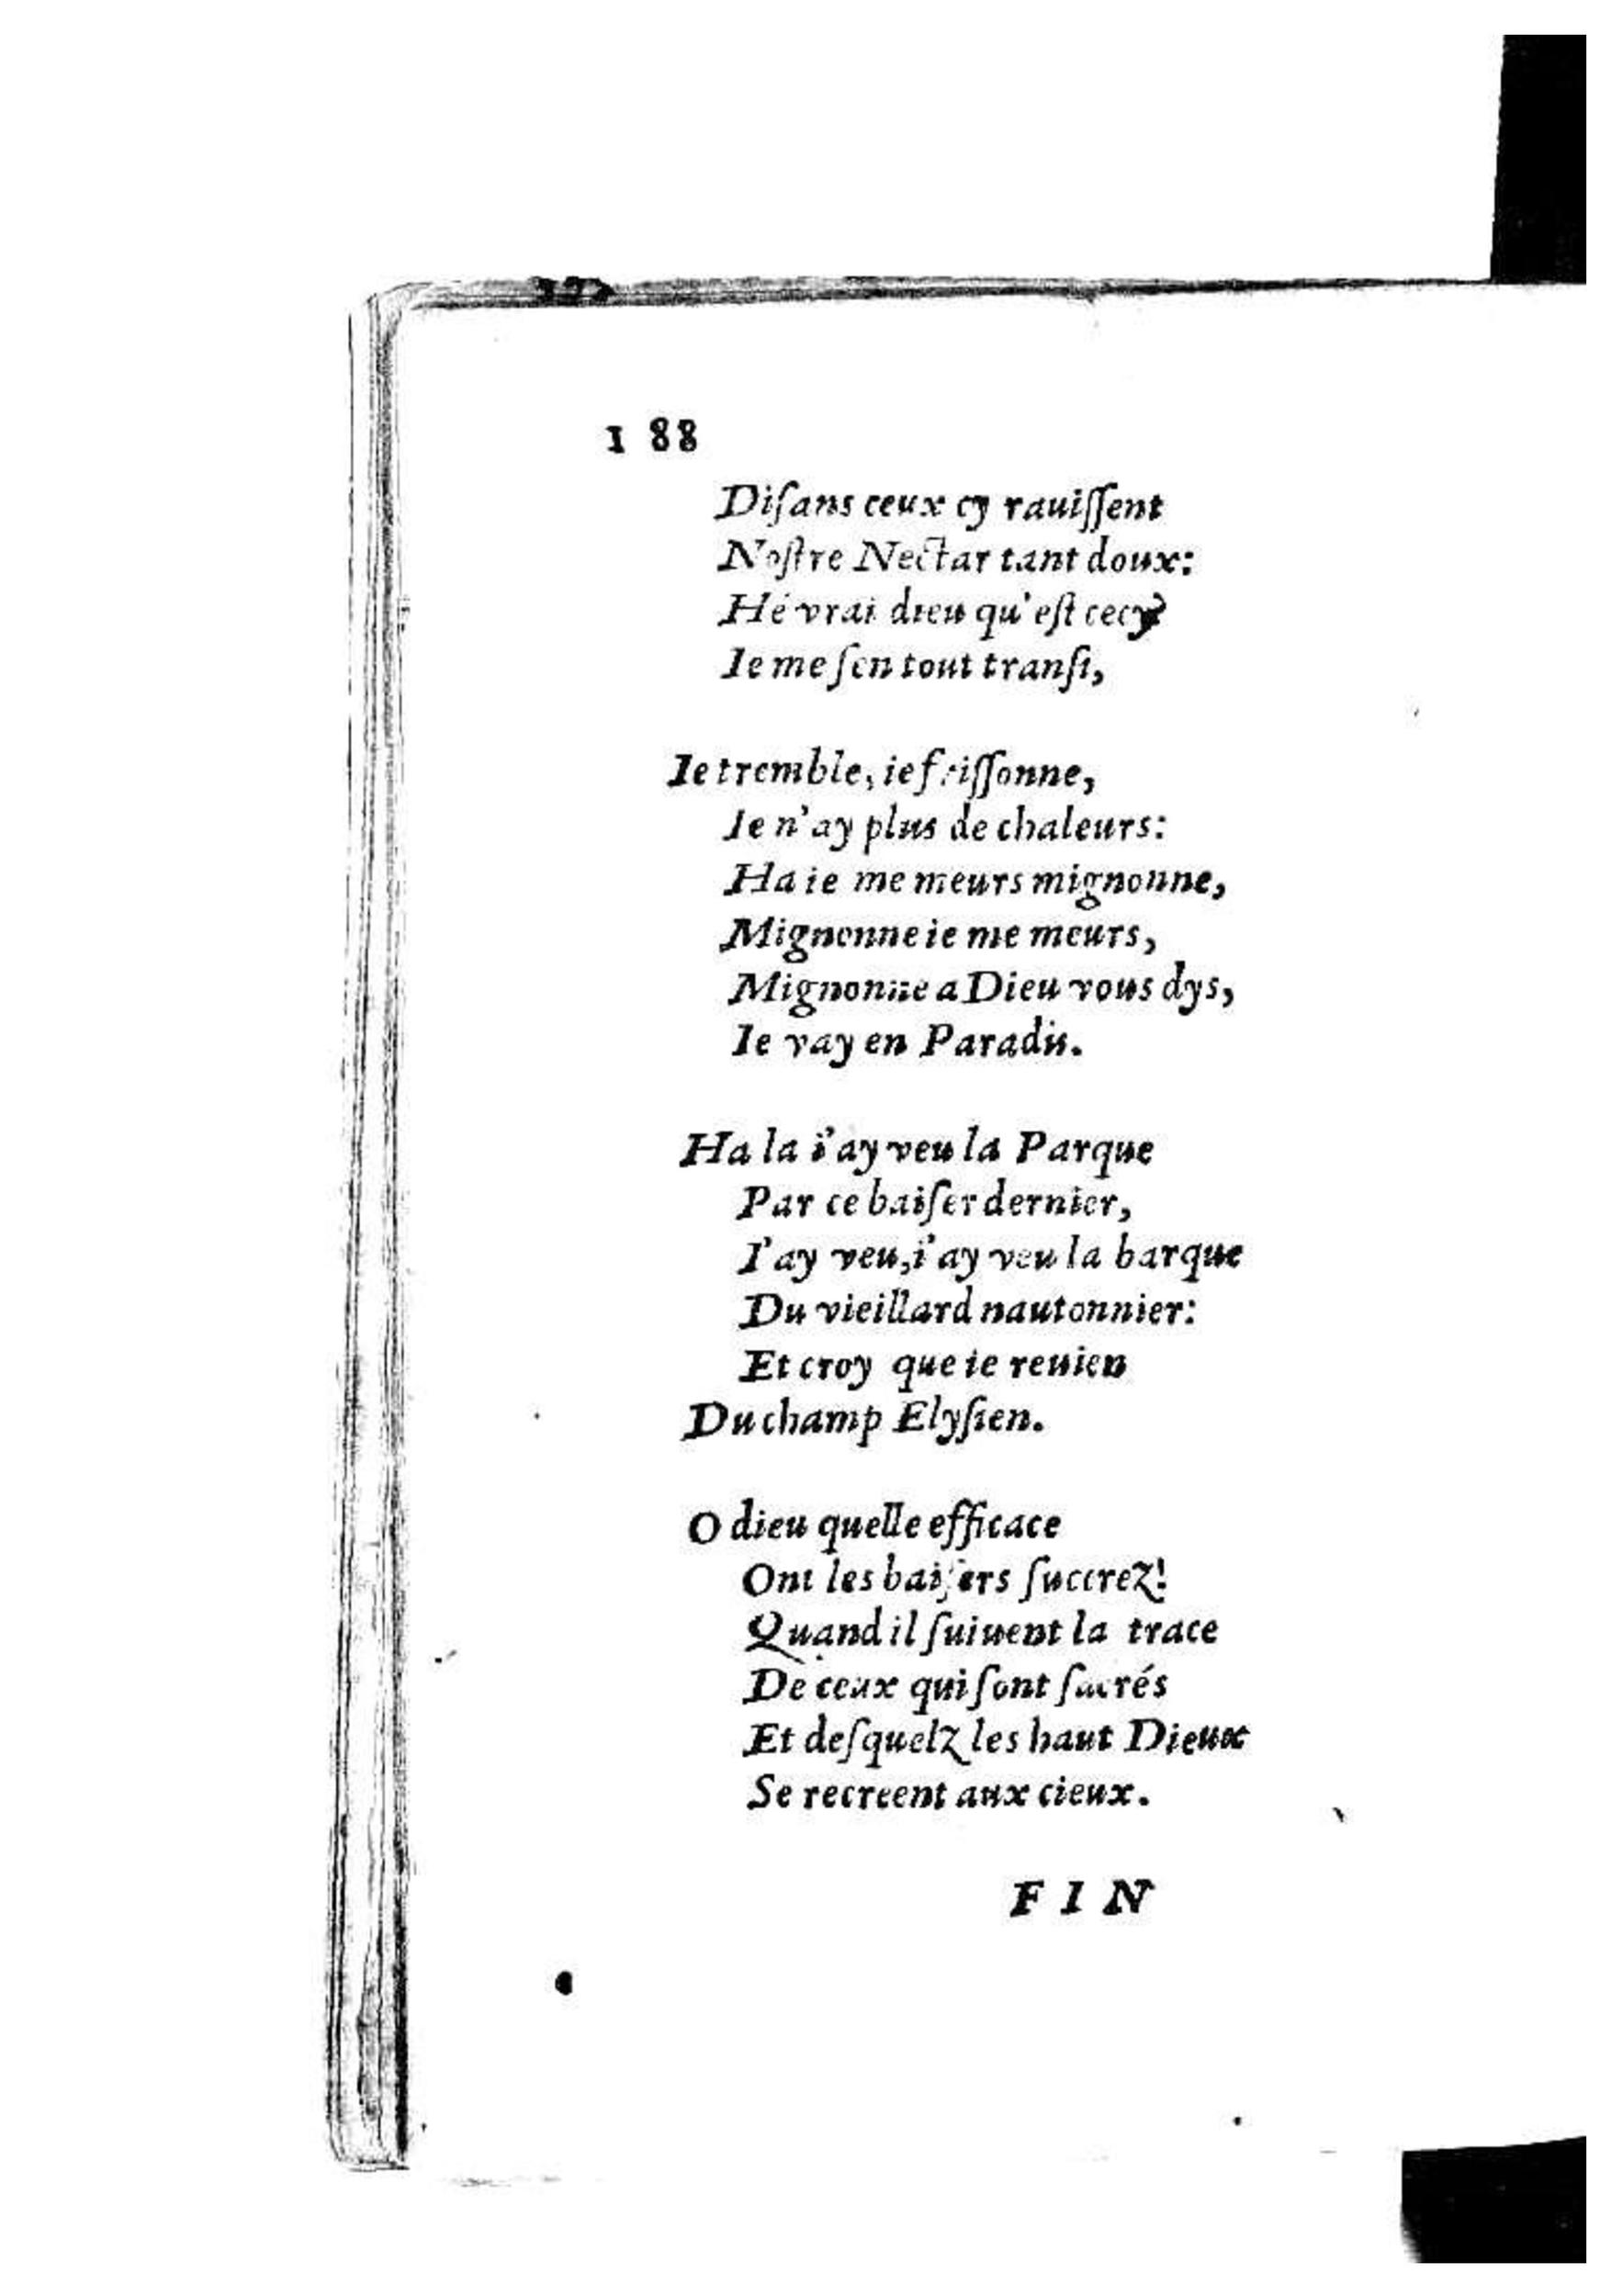 1 88
Diſans ceux cy rauiſſent
Noſtre Nectar tant doux:
Hé vrai dieu qu'eſt cecy?
Ie me ſen tout tranſi,
Ie tremble, ie friſſonne,
Ie n'ay plus de chaleurs:
Ha ie me meurs mignonne,
Mignonne ie me meurs,
Mignonne a Dieu vous dys,
Ie vay en Paradis.
Ha la i'ay veu la Parque
Par ce baiſer dernier,
I'ay veu, i'ay veu la barque
Du vieillard nautonnier:
Et croy que ie reuien
Du champ Elyſien.
O dieu quelle efficace
Ont les baiſers ſuccrez!
Quand il ſuiuent la trace
De ceux qui ſont ſacrés
Et deſquelz les haut Dieux
Se recreent aux cieux.
F I N